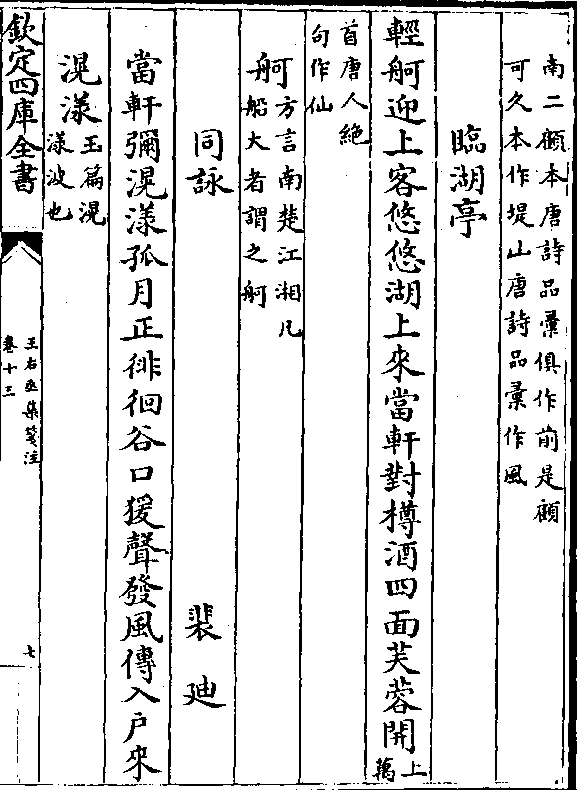 南二顧本唐詩品彚俱作前是顧
可久本作堤山唐詩品彚作風
臨湖亭
輕舸迎上客悠悠湖上來當軒對樽酒四面芙蓉開上萬
首唐人絶
句作仙
舸方言南楚江湘凡
船大者謂之舸
同詠
裴廸
當軒彌滉漾孤月正徘徊谷口猨聲發風傳入户來
滉漾玉篇滉
漾波也
欽定四庫全書
王右丞集箋注
卷十三
七